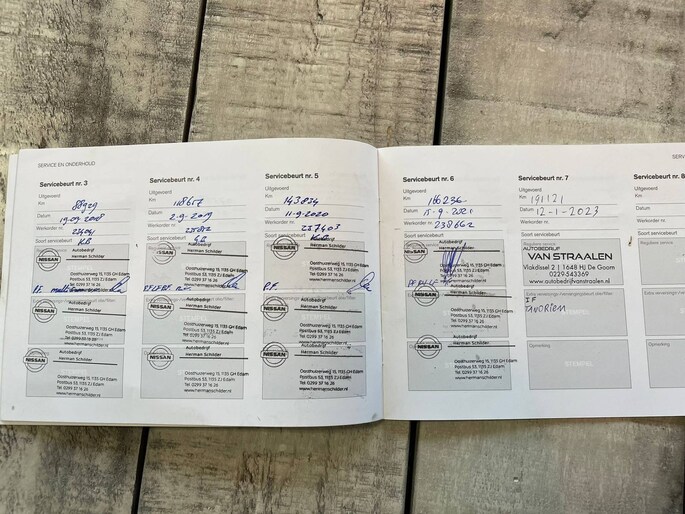 SERVICE EN ONDERHOUD
Servicebeurt nr. 3
Uitgevoerd
Km
Datum 19.09.2018
Werkorder nr.
Soort servicebeurt KB
NISSAN
Autobedrijf
Herman Schilder
Oosthuizerweg 15, 1135 GH Edam
Postbus 53, 1135 ZJ Edam
Tel. 0299 37 16 26
www.hermanschilder.nl
NISSAN
Autobedrijf
Herman Schilder
Oosthuizerweg 15, 1135 GH Edam
Postbus 53, 1135 ZJ Edam
Tel. 0299 37 16 26
www.hermanschilder.nl
NISSAN
Autobedrijf
Herman Schilder
Oosthuizerweg 15, 1135 GH Edam
Postbus 53, 1135 ZJ Edam
Tel. 0299 37 16 26
www.hermanschilder.nl
8
Servicebeurt nr. 4
Uitgevoerd
Km
Datum 2-9-2019
Werkorder nr.
Soort servicebeurt
NISSAN
Autobedrijf
Herman Schilder
Oosthuizerweg 15, 1135 GH Edam
Postbus 53, 1135 ZJ Edam
Tel. 0299 37 16 26
www.hermanschilder.nl
NISSAN
Autobedrijf
Herman Schilder
Oosthuizerweg 15, 1135 GH Edam
Postbus 53, 1135 ZJ Edam
Tel. 0299 37 16 26
www.hermanschilder.nl
NISSAN
Autobedrijf
Herman Schilder
Oosthuizerweg 15, 1135 GH Edam
Postbus 53, 1135 ZJ Edam
Tel. 0299 37 16 26
www.hermanschilder.nl
Servicebeurt nr. 5
Uitgevoerd
Km 143834
Datum 11-9-2020
Werkorder nr. 237403
Soort servicebeurt
NISSAN
Autobedrijf
Herman Schilder
Oosthuizerweg 15, 1135 GH Edam
Postbus 53, 1135 ZJ Edam
Tel. 0299 37 16 26
www.hermanschilder.nl
P.F.
NISSAN
Autobedrijf
Herman Schilder
Oosthuizerweg 15, 1135 GH Edam
Postbus 53, 1135 ZJ Edam
Tel. 0299 37 16 26
www.hermanschilder.nl
NISSAN
Autobedrijf
Herman Schilder
Oosthuizerweg 15, 1135 GH Edam
Postbus 53, 1135 ZJ Edam
Tel. 0299 37 16 26
www.hermanschilder.nl
Servicebeurt nr. 6
Uitgevoerd
Km 166236
Datum 15-9-2021
Werkorder nr. 238662
Soort servicebeurt
NISSAN
Autobedrijf
Herman Schilder
Oosthuizerweg 15, 1135 GH Edam
Postbus 53, 1135 ZJ Edam
Tel. 0299 37 16 26
www.hermanschilder.nl
NISSAN
Autobedrijf
Herman Schilder
Oosthuizerweg 15, 1135 GH Edam
Postbus 53, 1135 ZJ Edam
Tel. 0299 37 16 26
www.hermanschilder.nl
NISSAN
Autobedrijf
Herman Schilder
Oosthuizerweg 15, 1135 GH Edam
Postbus 53, 1135 ZJ Edam
Tel. 0299 37 16 26
www.hermanschilder.nl
Servicebeurt nr. 7
Uitgevoerd
Km 191121
Datum 12-1-2023
Werkorder nr.
Soort servicebeurt
Reguliere service
AUTOBEDRIJF
VAN STRAALEN
Vlakdissel 2 | 1648 HJ De Goorn
0229-543369
www.autobedrijfvanstraalen.nl
IF
Opmerking
SERVICE
Servicebeurt nr. 8
Uitgevoerd
Km
Datum
Werkorder nr.
Soort servicebeurt
Reguliere service
Opmerking